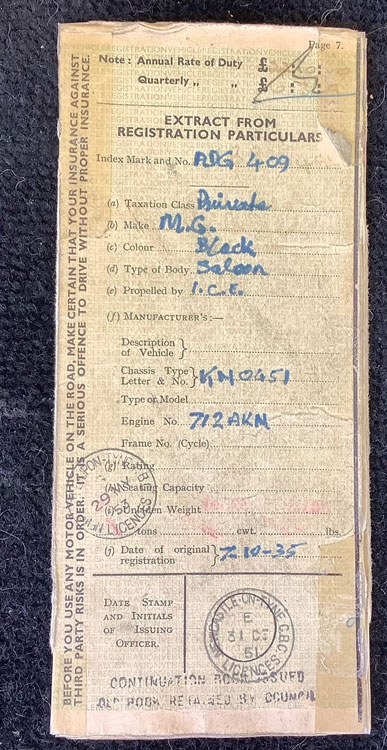 Page 7.
Note : Annual Rate of Duty
Quarterly ,, ,,
EXTRACT FROM
REGISTRATION PARTICULARS
Index Mark and No. ADG 409
(a) Taxation Class Private
(b) Make M.G.
(c) Colour Black
(d) Type of Body Saloon
(e) Propelled by I.C.E.
(f) MANUFACTURER'S :—
Description
of Vehicle }
Chassis Type
Letter & No. } KN0451
Type or Model
Engine No. 712AKN
Frame No. (Cycle)
(g) Rating
(h) Seating Capacity
(i) Unladen Weight
tons cwt. lbs.
(j) Date of original
registration } 7-10-35
DATE STAMP
AND INITIALS
OF ISSUING
OFFICER.
NEWCASTLE-ON-TYNE C.B.C.
E
31 DE
51
LICENCES
CONTINUATION BOOK ISSUED
OLD BOOK RETAINED BY COUNCIL
29
LICENCES
BEFORE YOU USE ANY MOTOR VEHICLE ON THE ROAD, MAKE CERTAIN THAT YOUR INSURANCE AGAINST
THIRD PARTY RISKS IS IN ORDER. IT IS A SERIOUS OFFENCE TO DRIVE WITHOUT PROPER INSURANCE.